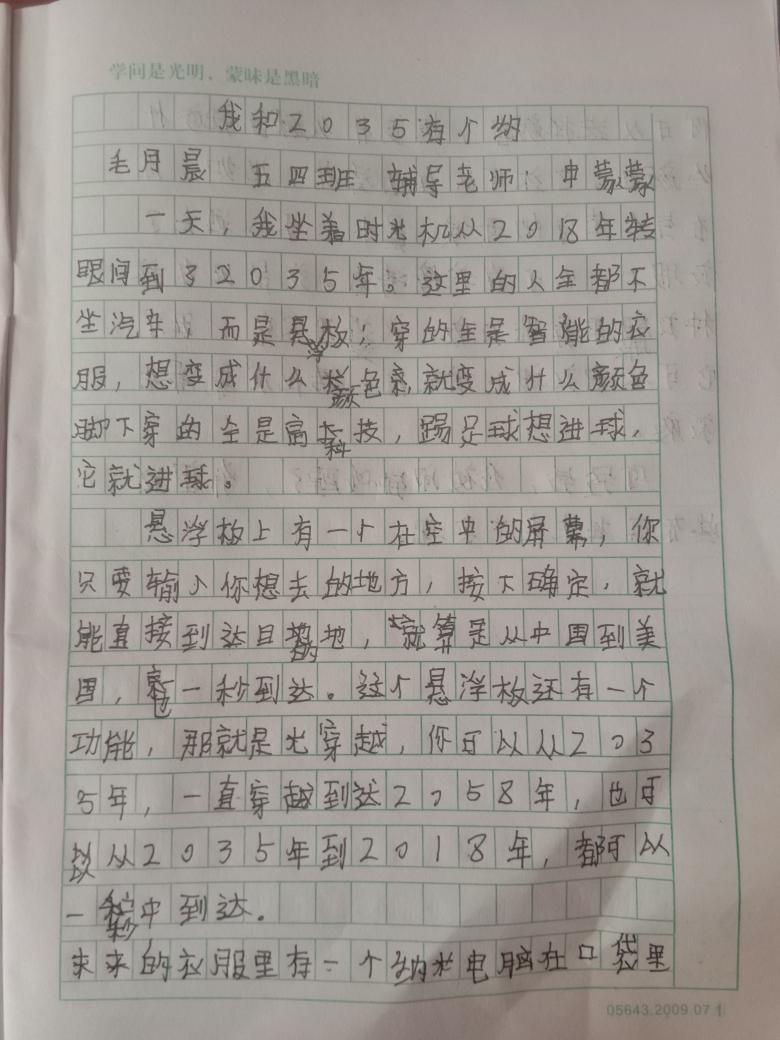 学问是光明，蒙昧是黑暗
我和2035有个约
毛月晨 五四班 辅导老师：申蒙蒙
一天，我坐着时光机从2018年转
眼间到32035年。这里的人全都不
坐汽车，而是悬浮板；穿的全是智能的衣
服，想变成什么颜色就变成什么颜色
脚下穿的全是高科技，踢足球想进球，
它就进球。
悬浮板上有一个在空中的屏幕，你
只要输入你想去的地方，按下确定，就
能直接到达目的地，就算是从中国到美
国，也一秒到达。这个悬浮板还有一个
功能，那就是光穿越，你可以从203
5年，一直穿越到达2058年，也可
以从2035年到2018年，都可以
一秒中到达。
未来的衣服里有一个纳米电脑在口袋里
05643.2009.07